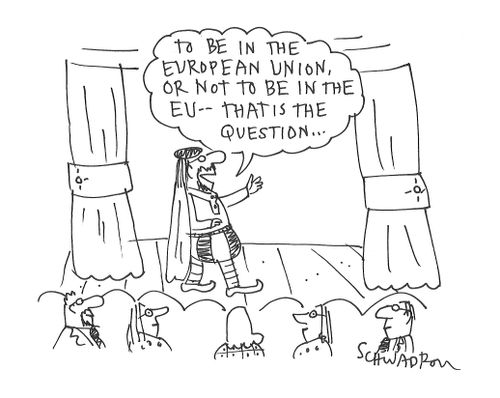 TO BE IN THE
EUROPEAN UNION,
OR NOT TO BE IN THE
EU-- THAT IS THE
QUESTION...
SCHWADRON